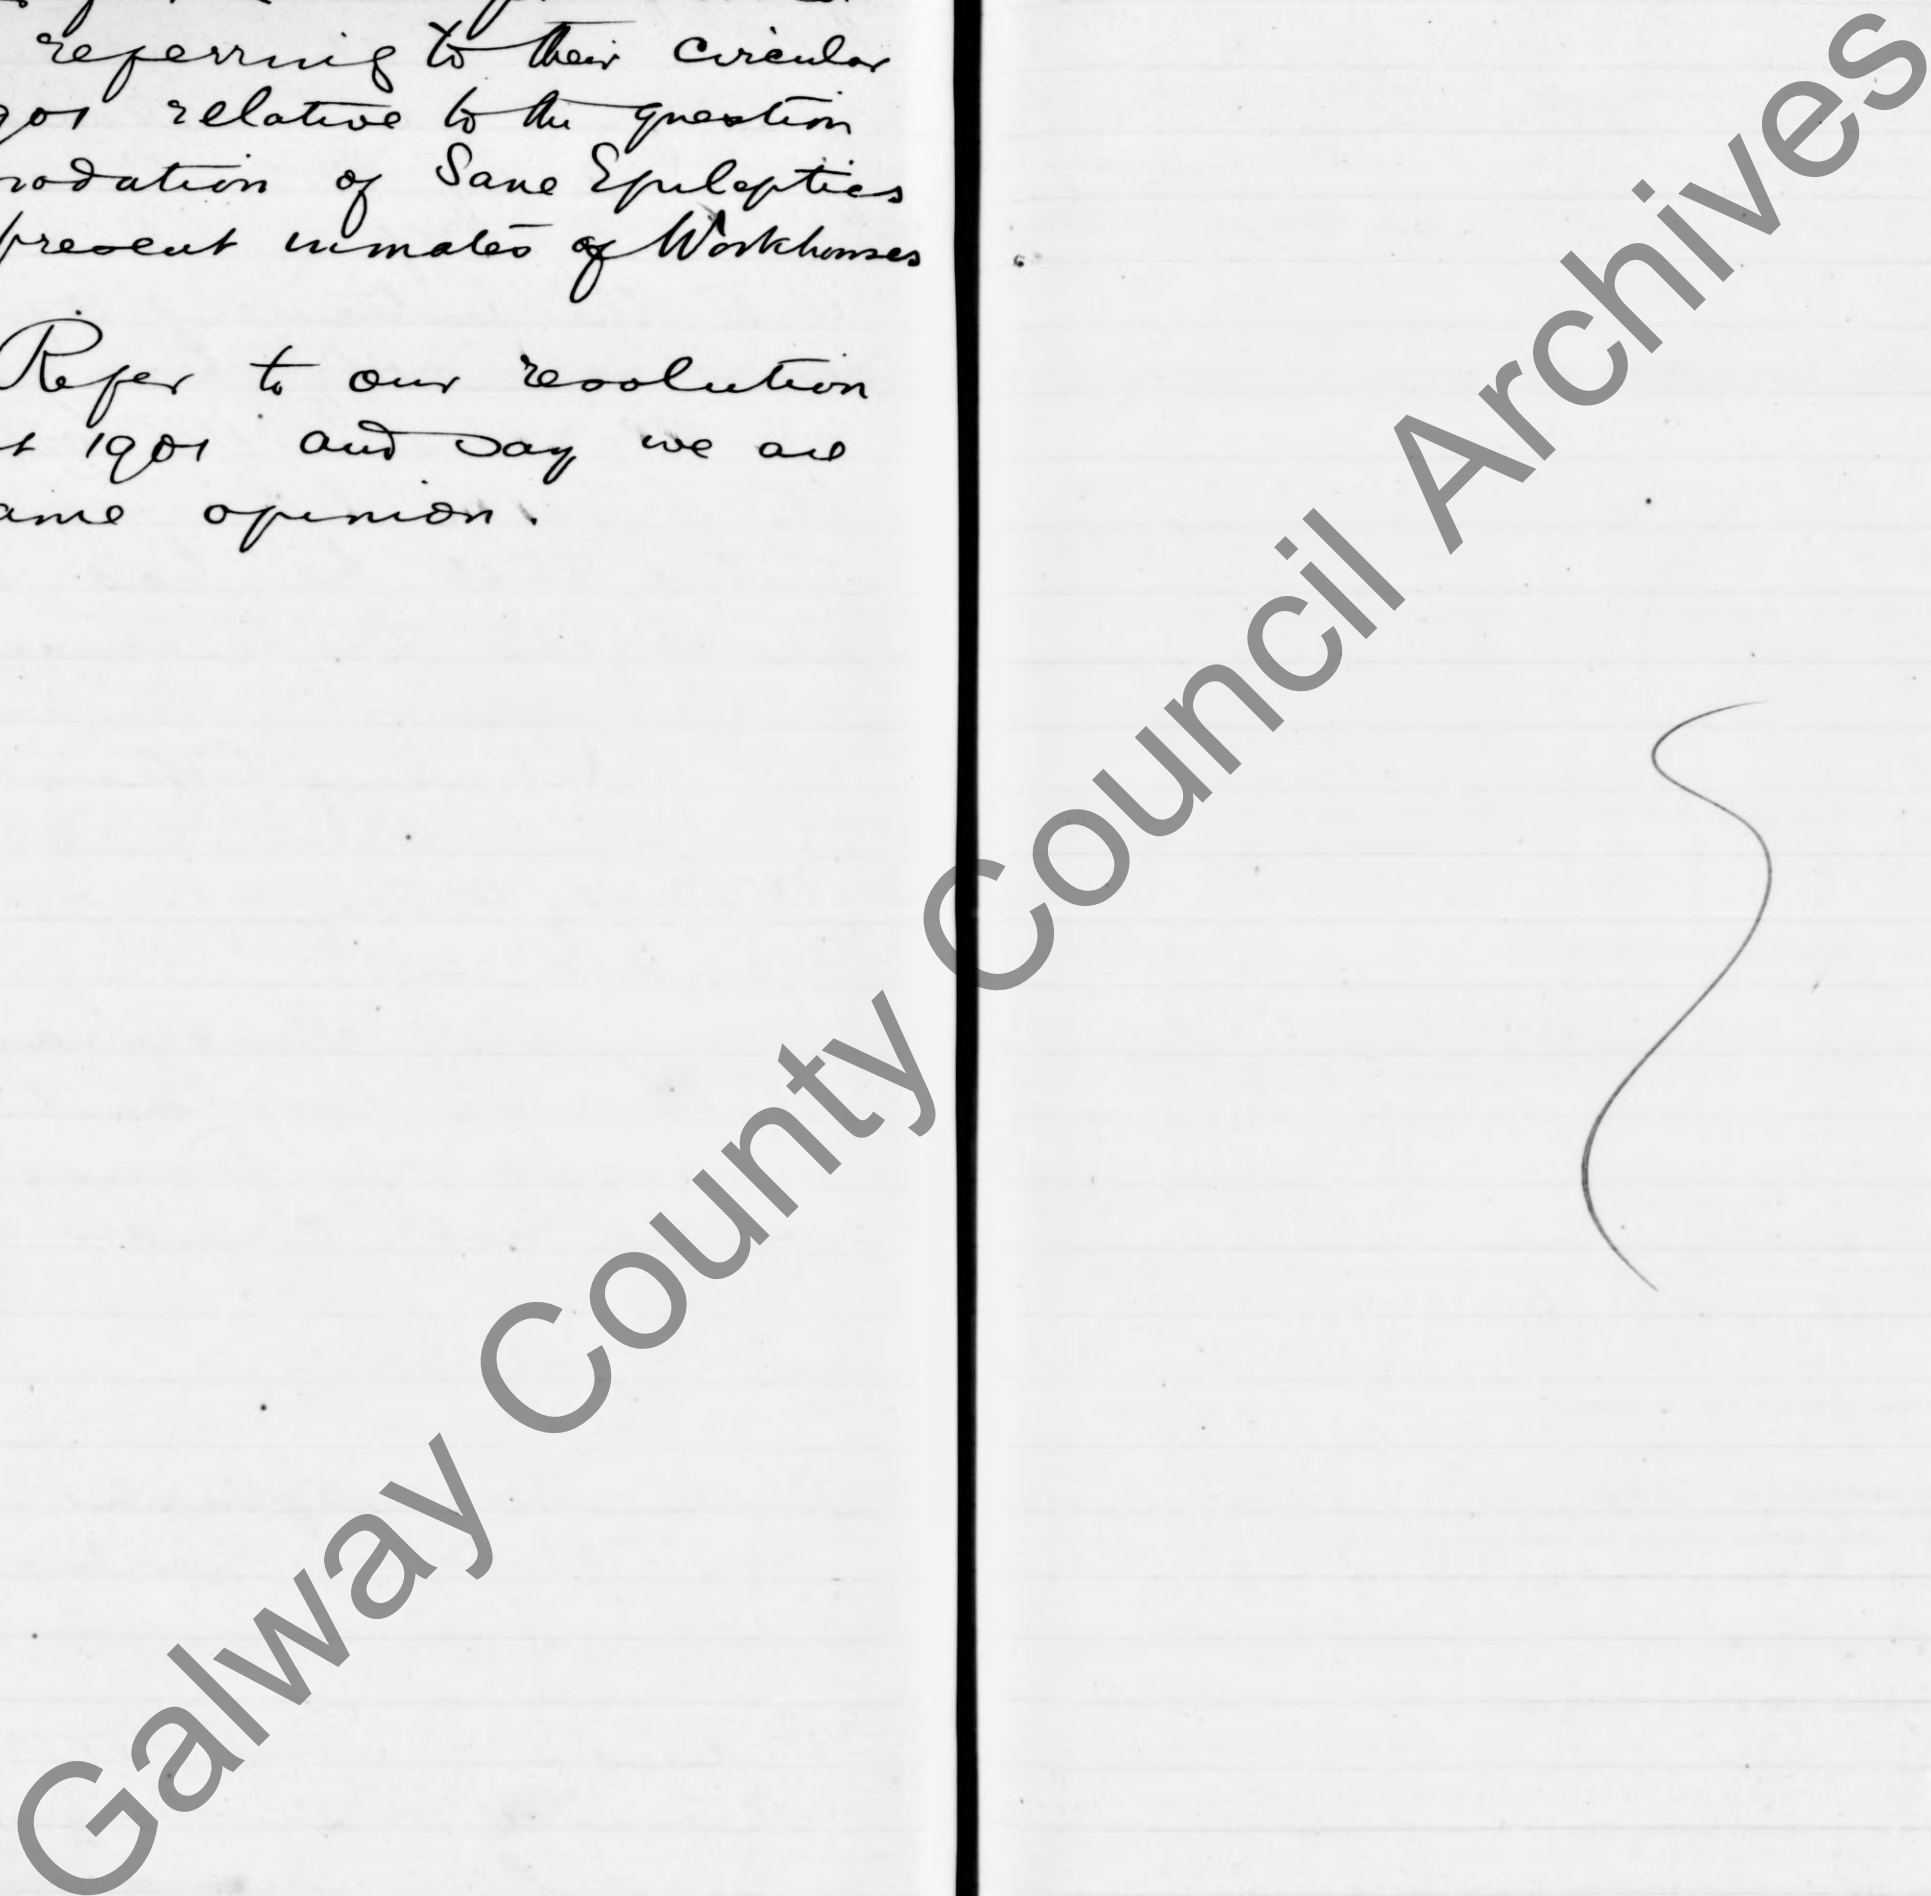 referring to their circular
901 relative to the question
modation of Sane Epileptics
present inmates of Workhouses
Refer to our resolution
t 1901 and say we are
ame opinion.
Galway County Council Archives